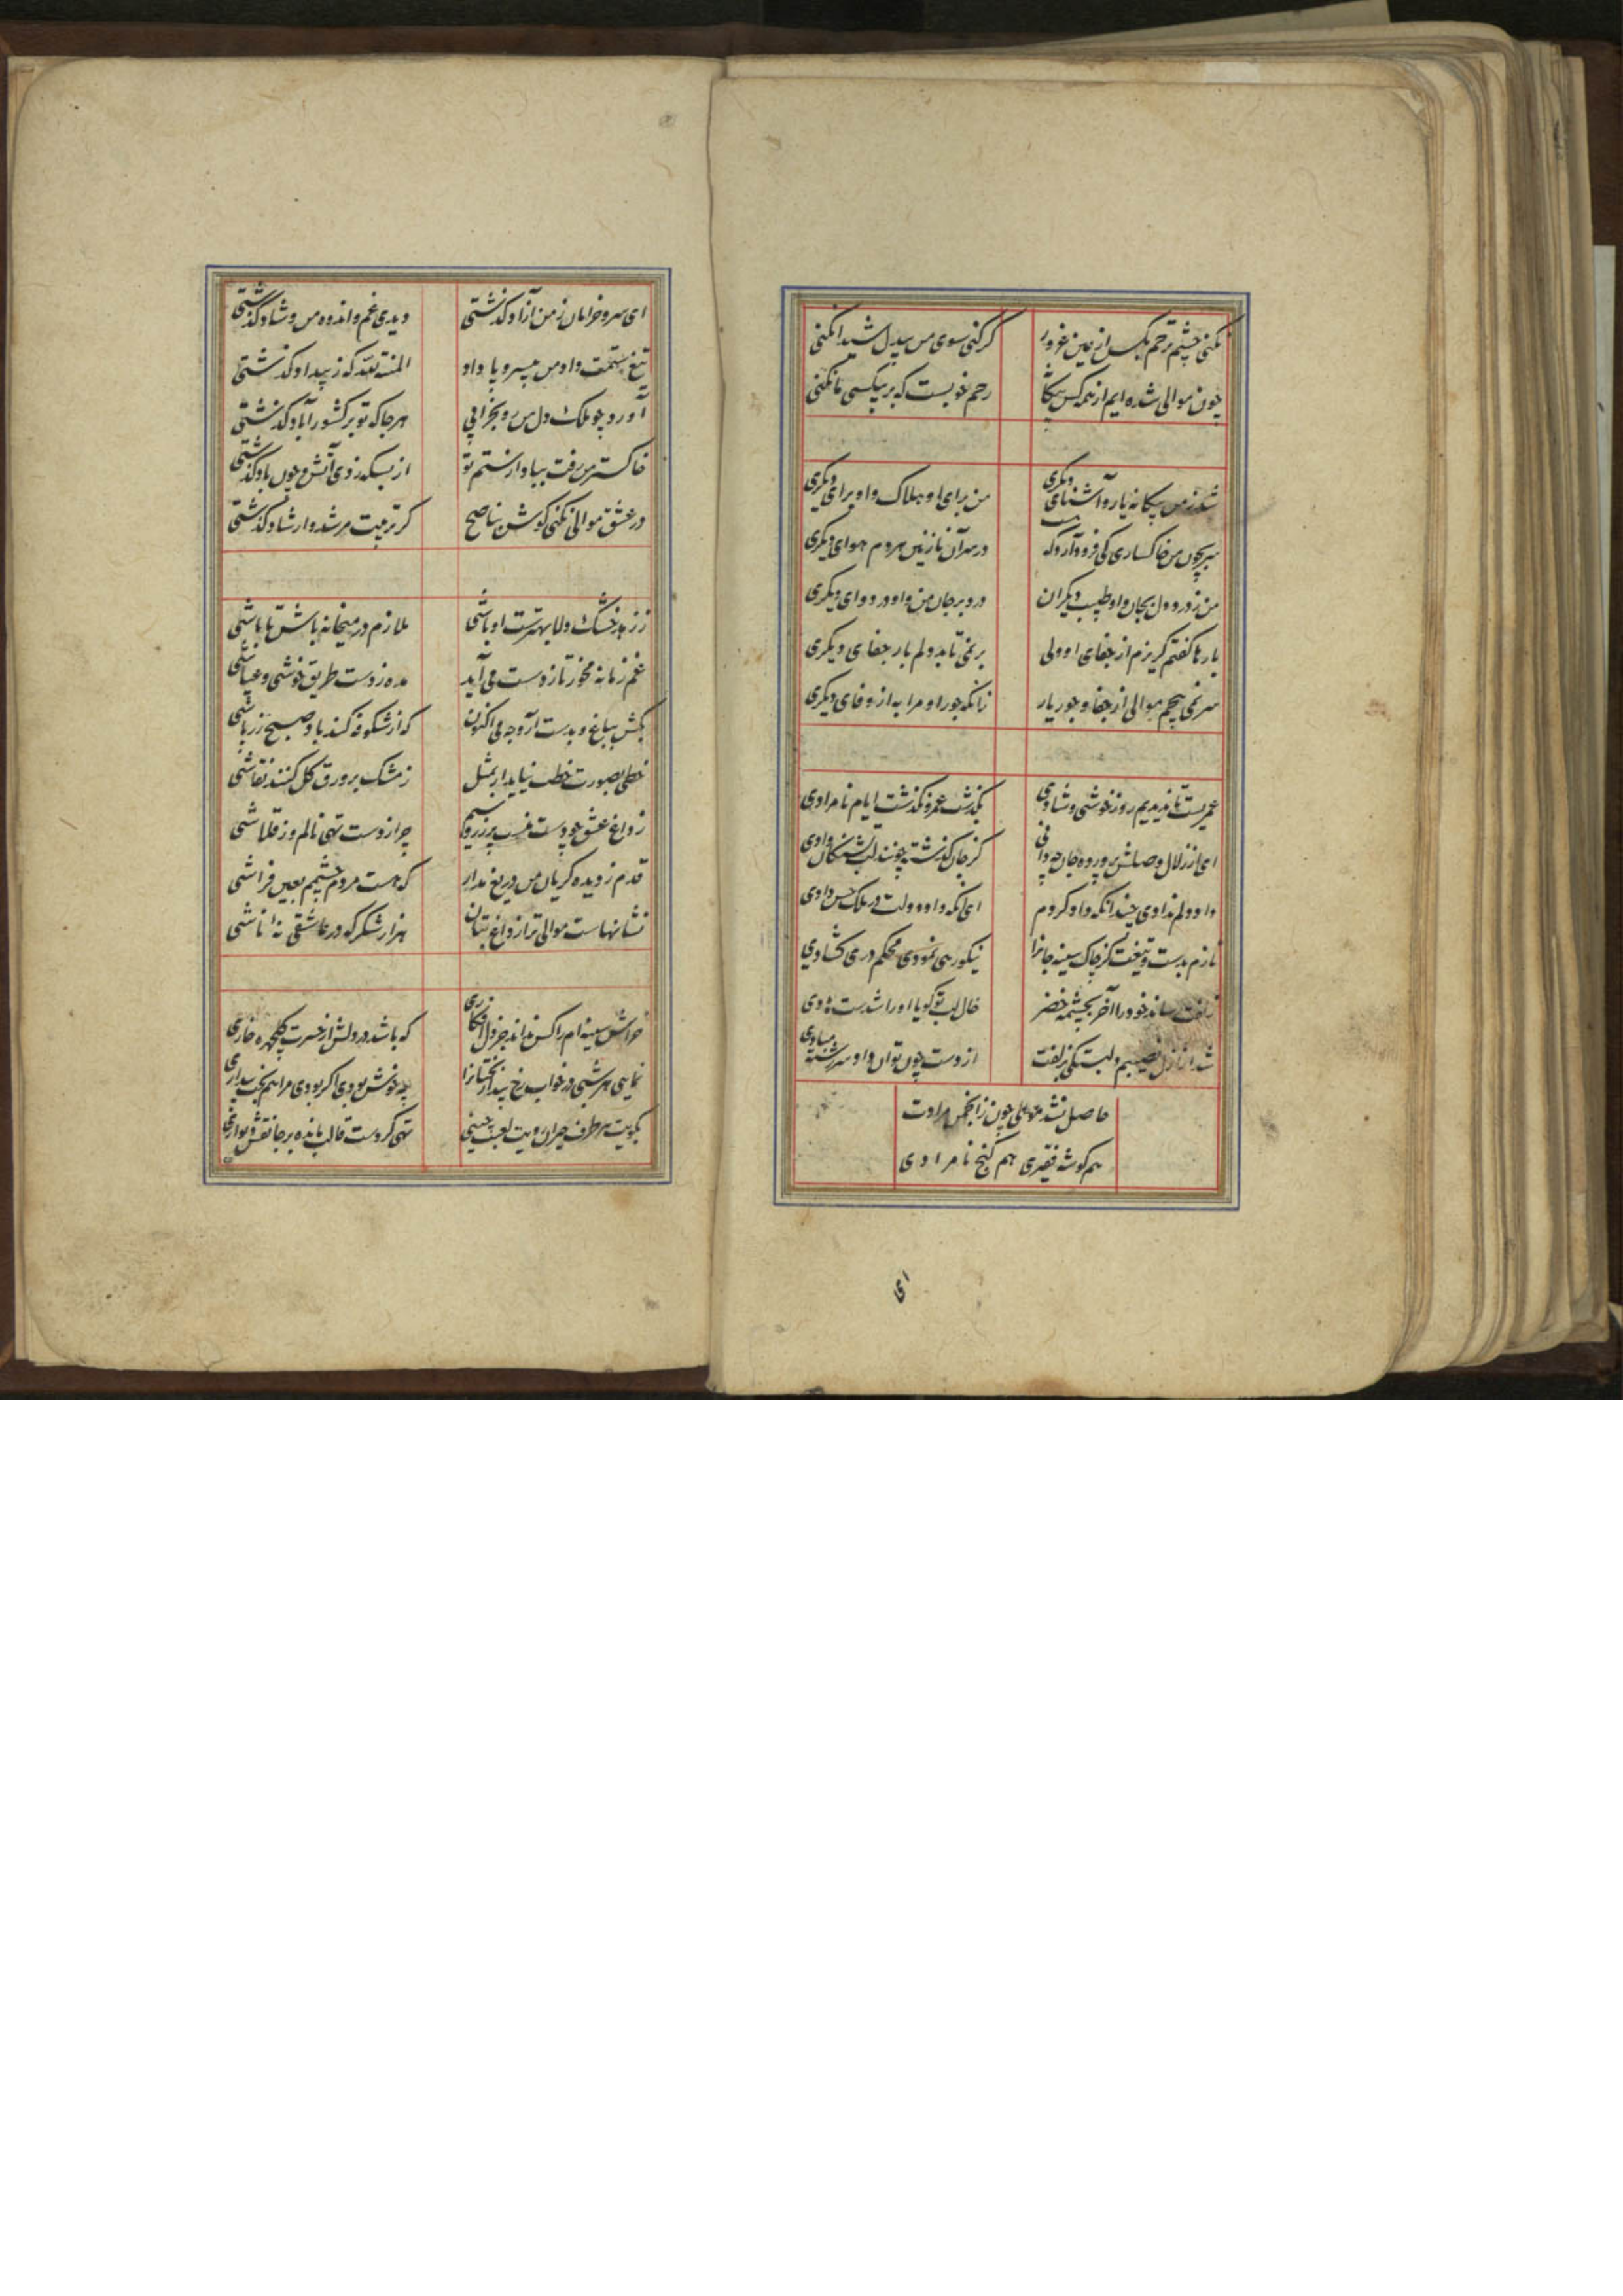 نکنی چشم ترحم بکس از عین غرور گر کنی سوی من بیدل شیدا نکنی
چون موالی شده ایم از همه کس رحم خوبست که بر بیکسی ما نکنی
شد ز من بیگانه یار و آشنای دیگری من برای او هلاک و او برای دیگری
سر بچون من خاکساری کی فرود آرد که در سر آن نازنین هردم هوای دیگری
من ز درد دل بجان و او طبیب دیگران درد بر جان من و او در دوای دیگری
بارها گفتم گریزم از جفای او ولی بر نمی تابد دلم بار جفای دیگری
سر نمی پیچم موالی از جفا و جور یار زانکه جور او مرا به از وفای دیگری
عمریست تا ندیدیم روز خوشی و شادی بگذشت عمر و نگذشت ایام نامرادی
ای از زلال وصلش پرورده جان چه دانی کز جان گذشته چونند لب تشنگان وادی
داد دلم ندادی چندانکه داد کردم ای آنکه داد دولت در ملک حسن دادی
نازم بدست و تیغت کز چاک سینه جانرا نیکو رهی نمودی محکم دری گشادی
زلفت رساند خود را آخر بچشمه خضر خال لب تو گویا او را شدست هادی
شد از ازل نصیبم لبت زلفت از دست چون توان داد سررشته مبادی
حاصل نشد موالی چون زانجمن مرادت
هم گوشه فقیری هم کنج نامرادی
ای
ای سرو خرامان ز من آزاد گذشتی دیدی غم و اندوه من و شاد گذشتی
تیغ ستمت داد من بیسر و پا داد المنة لله که ز بیداد گذشتی
آورد چو ملک دل من رو بخرابی هر جا که تو بر کشور آباد گذشتی
خاکستر من رفت بباد از ستم تو از بسکه زدی آتش و چون باد گذشتی
در عشق موالی نکنی گوش بناصح کز تربیت مرشد و ارشاد گذشتی
ز زهد خشک دلا بهترست اوباشی ملازم در میخانه باش تا باشی
غم زمانه مخور تا ز دست می آید مده ز دست طریق خوشی و عیاشی
بکش بباغ و بدست آر وجه می اکنون که از شکوفه کند باد صبح زرپاشی
خطی بصورت خطت نیاید ار بمثل ز مشک بر ورق گل کنند نقاشی
ز داغ عشق چو دست پر زر و سیم چرا ز دست تهی نالم و ز قلاشی
قدم ز دیده گریان من دریغ مدار که هست مردم چشمم بعین فراشی
نشانهاست موالی ترا ز داغ بتان هزار شکر که در عاشقی نه ناشی
خراش سینه ام را کس نداند جز دل افکاری که باشد در دلش از حسرت گلچهره خاری
نمایی هر شبی در خواب رخ بیدار بختانرا چه خوش بودی اگر بودی مرا هم بخت بیداری
بکویت هر طرف حیران رویت لعبت چینی تهی کردست قالب مانده بر جا نقش دیواری